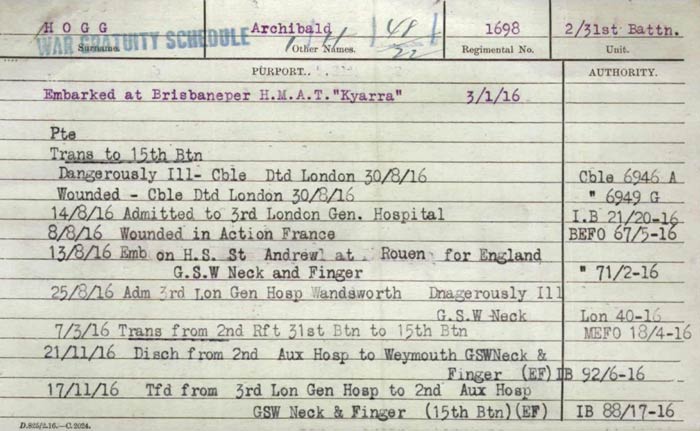 HOGG Archibald 48/22 1698 2/31st Battn.
WAR GRATUITY SCHEDULE
Surname. Other Names. Regimental No. Unit.
PURPORT. AUTHORITY.
Embarked at Brisbaneper H.M.A.T."Kyarra" 3/1/16
Pte
Trans to 15th Btn
Dangerously Ill- Cble Dtd London 30/8/16 Cble 6946 A
Wounded - Cble Dtd London 30/8/16 " 6949 G
14/8/16 Admitted to 3rd London Gen. Hospital I.B 21/20-16
8/8/16 Wounded in Action France BEFO 67/5-16
13/8/16 Emb on H.S. St Andrewl at Rouen for England
G.S.W Neck and Finger " 71/2-16
25/8/16 Adm 3rd Lon Gen Hosp Wandsworth Dnagerously Ill
G.S.W Neck Lon 40-16
7/3/16 Trans from 2nd Rft 31st Btn to 15th Btn MEFO 18/4-16
21/11/16 Disch from 2nd Aux Hosp to Weymouth GSWNeck &
Finger (EF) IB 92/6-16
17/11/16 Tfd from 3rd Lon Gen Hosp to 2nd Aux Hosp
GSW Neck & Finger (15th Btn)(EF) IB 88/17-16
D.825/2.16.—C.2024.